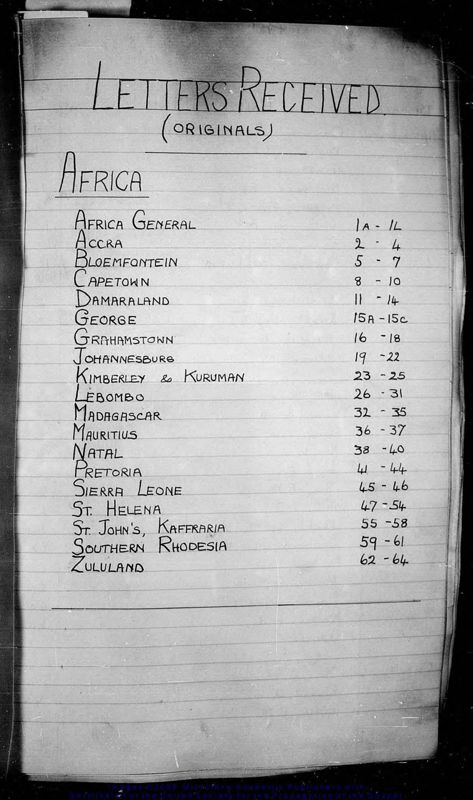 LETTERS RECEIVED
(ORIGINALS)
AFRICA
AFRICA GENERAL 1A - 1L
ACCRA 2 - 4
BLOEMFONTEIN 5 - 7
CAPETOWN 8 - 10
DAMARALAND 11 - 14
GEORGE 15A - 15C
GRAHAMSTOWN 16 - 18
JOHANNESBURG 19 - 22
KIMBERLEY & KURUMAN 23 - 25
LEBOMBO 26 - 31
MADAGASCAR 32 - 35
MAURITIUS 36 - 37
NATAL 38 - 40
PRETORIA 41 - 44
SIERRA LEONE 45 - 46
ST. HELENA 47 - 54
ST. JOHN'S, KAFFRARIA 55 - 58
SOUTHERN RHODESIA 59 - 61
ZULULAND 62 - 64